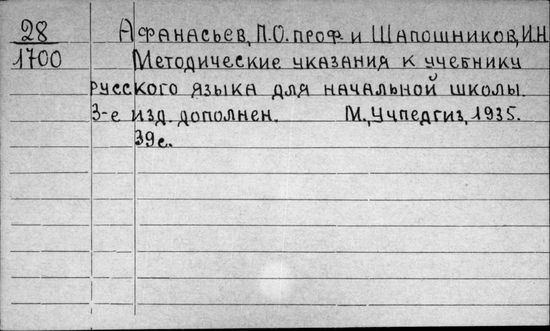 28
1700
Афанасьев, П.О. проф. и Шапошников, И.Н
Методические указания к учебнику
русского языка для начальной школы.
3-е изд. дополнен. М., Учпедгиз, 1935.
39с.